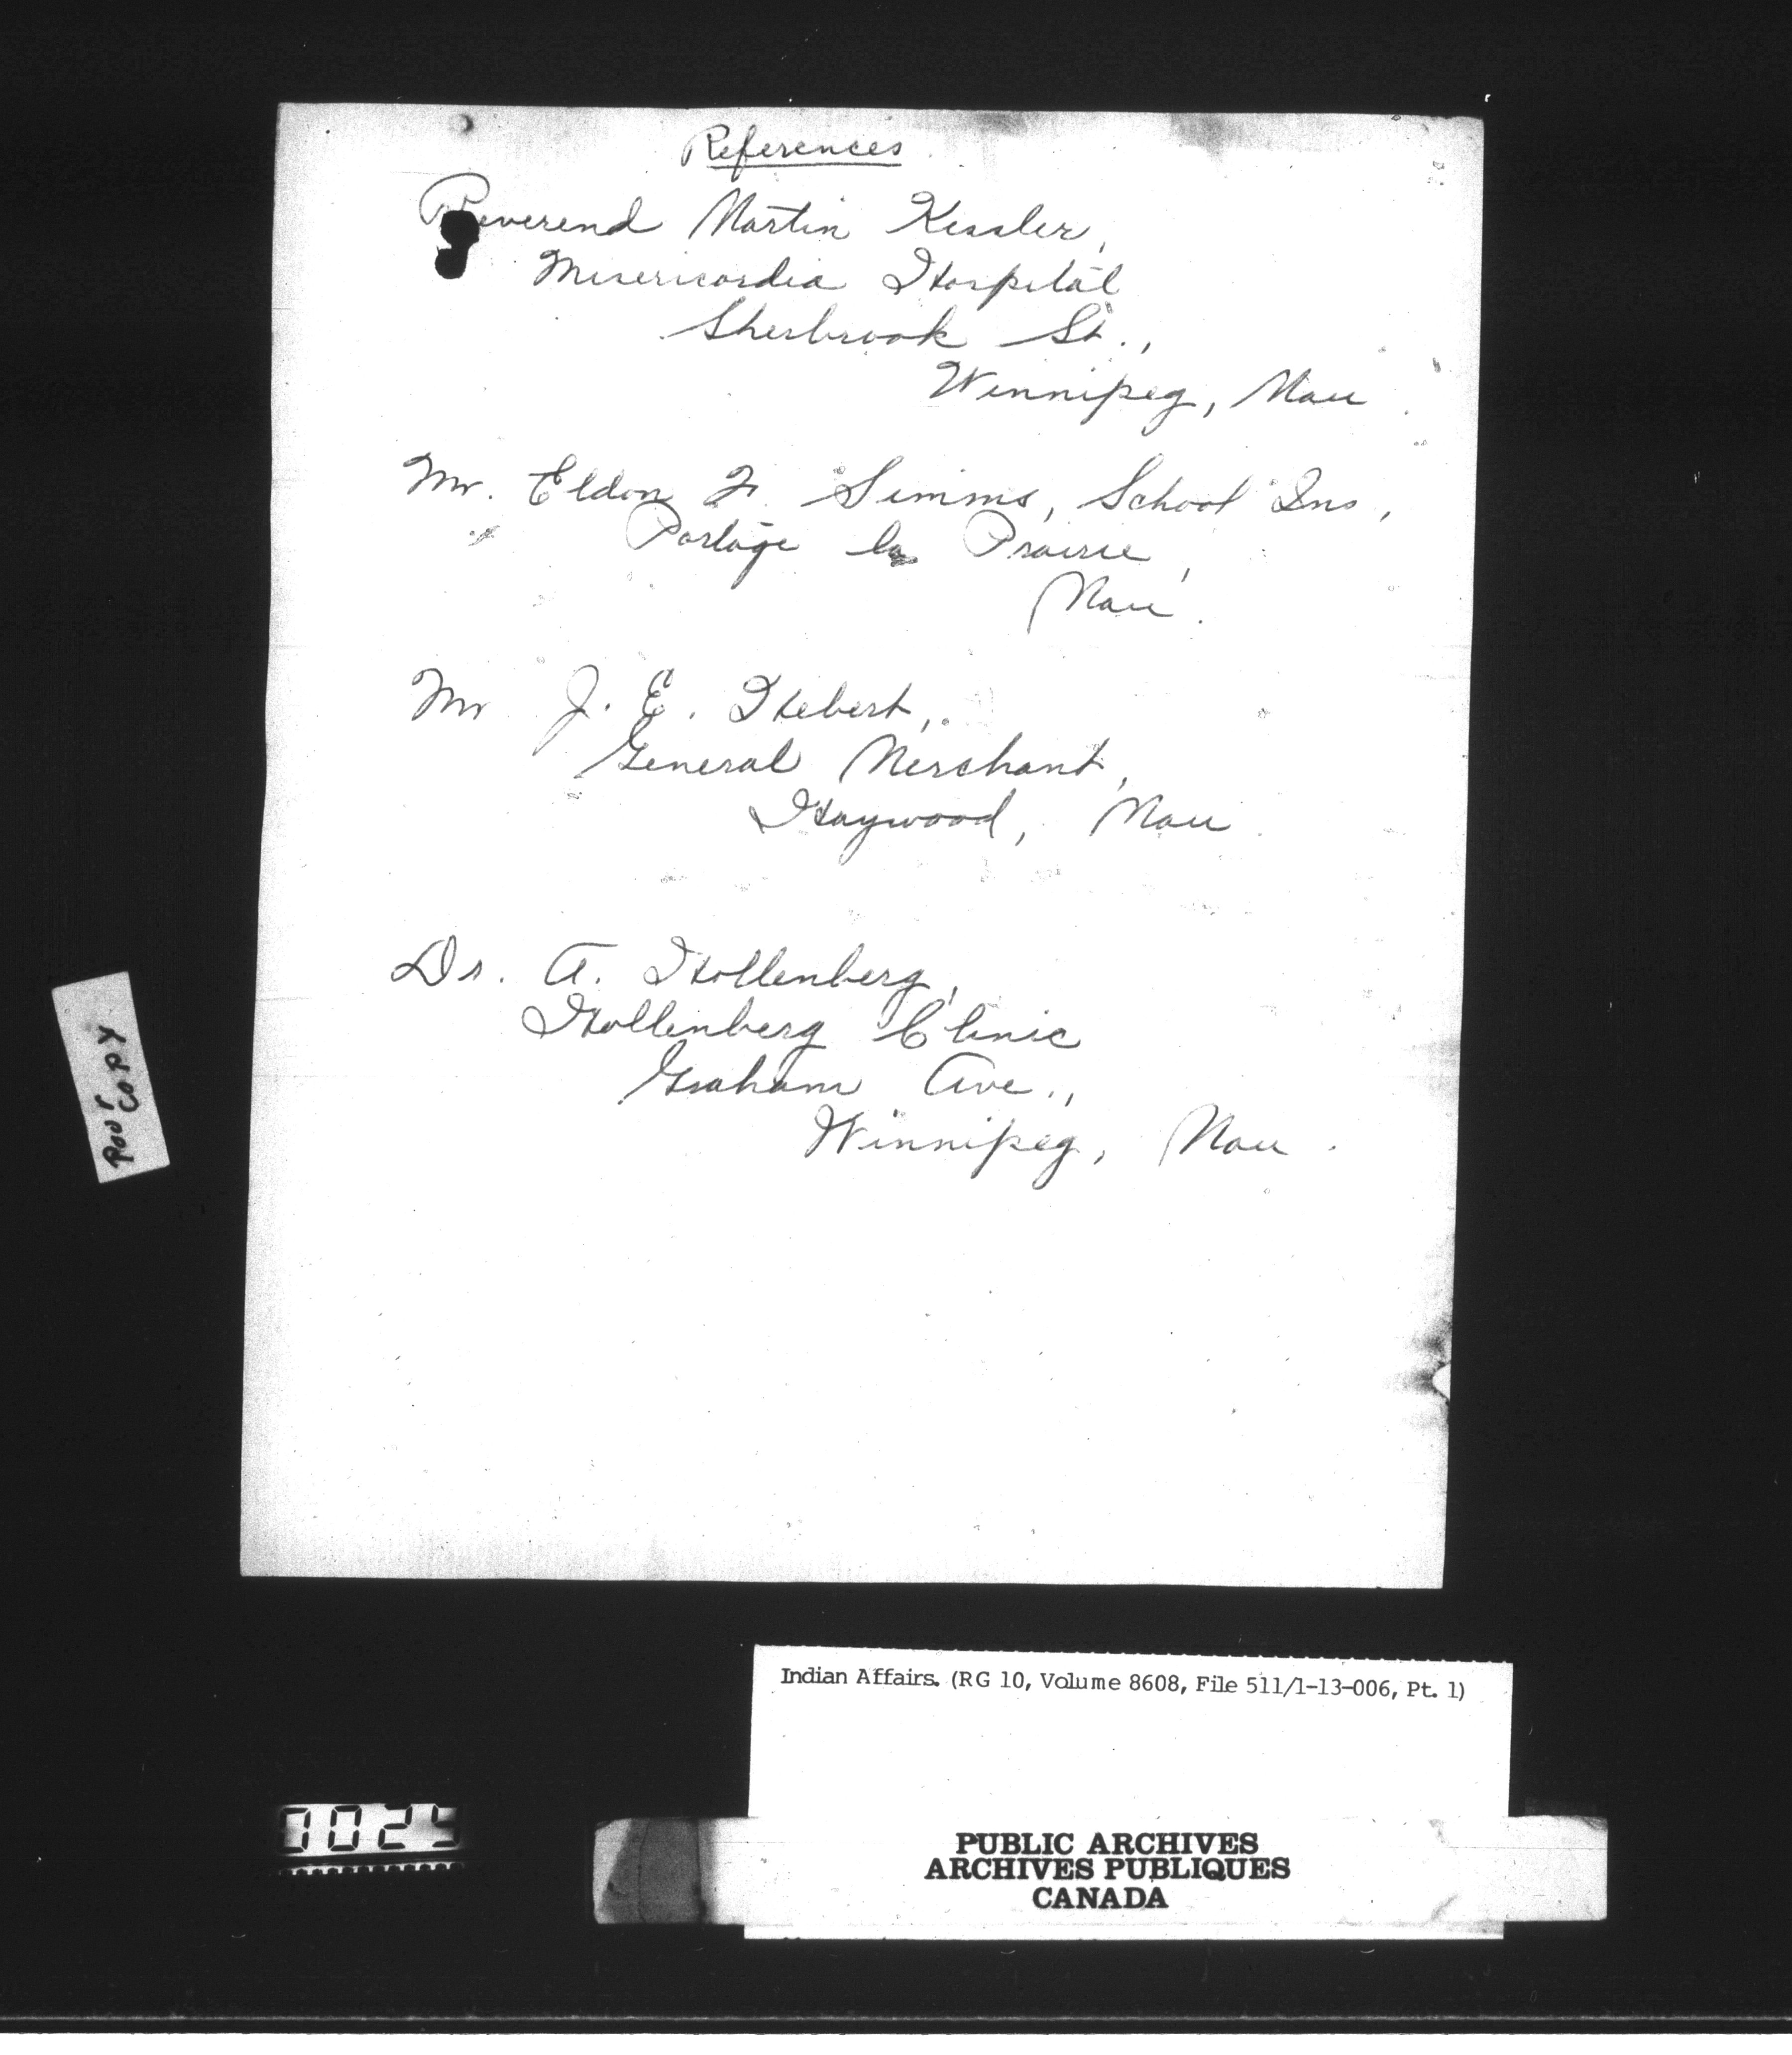 References
Reverend Martin Kessler,
Misericordia Hospital
Sherbrook St.,
Winnipeg, Man.
Mr. Eldon F. Simms, School Ins,
Portage la Prairie,
Man.
Mr J. E. Hebert,
General Merchant,
Haywood, Man.
Dr. A. Hollenberg,
Hollenberg Clinic
Graham Ave.,
Winnipeg, Man.
Poor
COPY
Indian Affairs. (RG 10, Volume 8608, File 511/1-13-006, Pt. 1)
PUBLIC ARCHIVES
ARCHIVES PUBLIQUES
CANADA